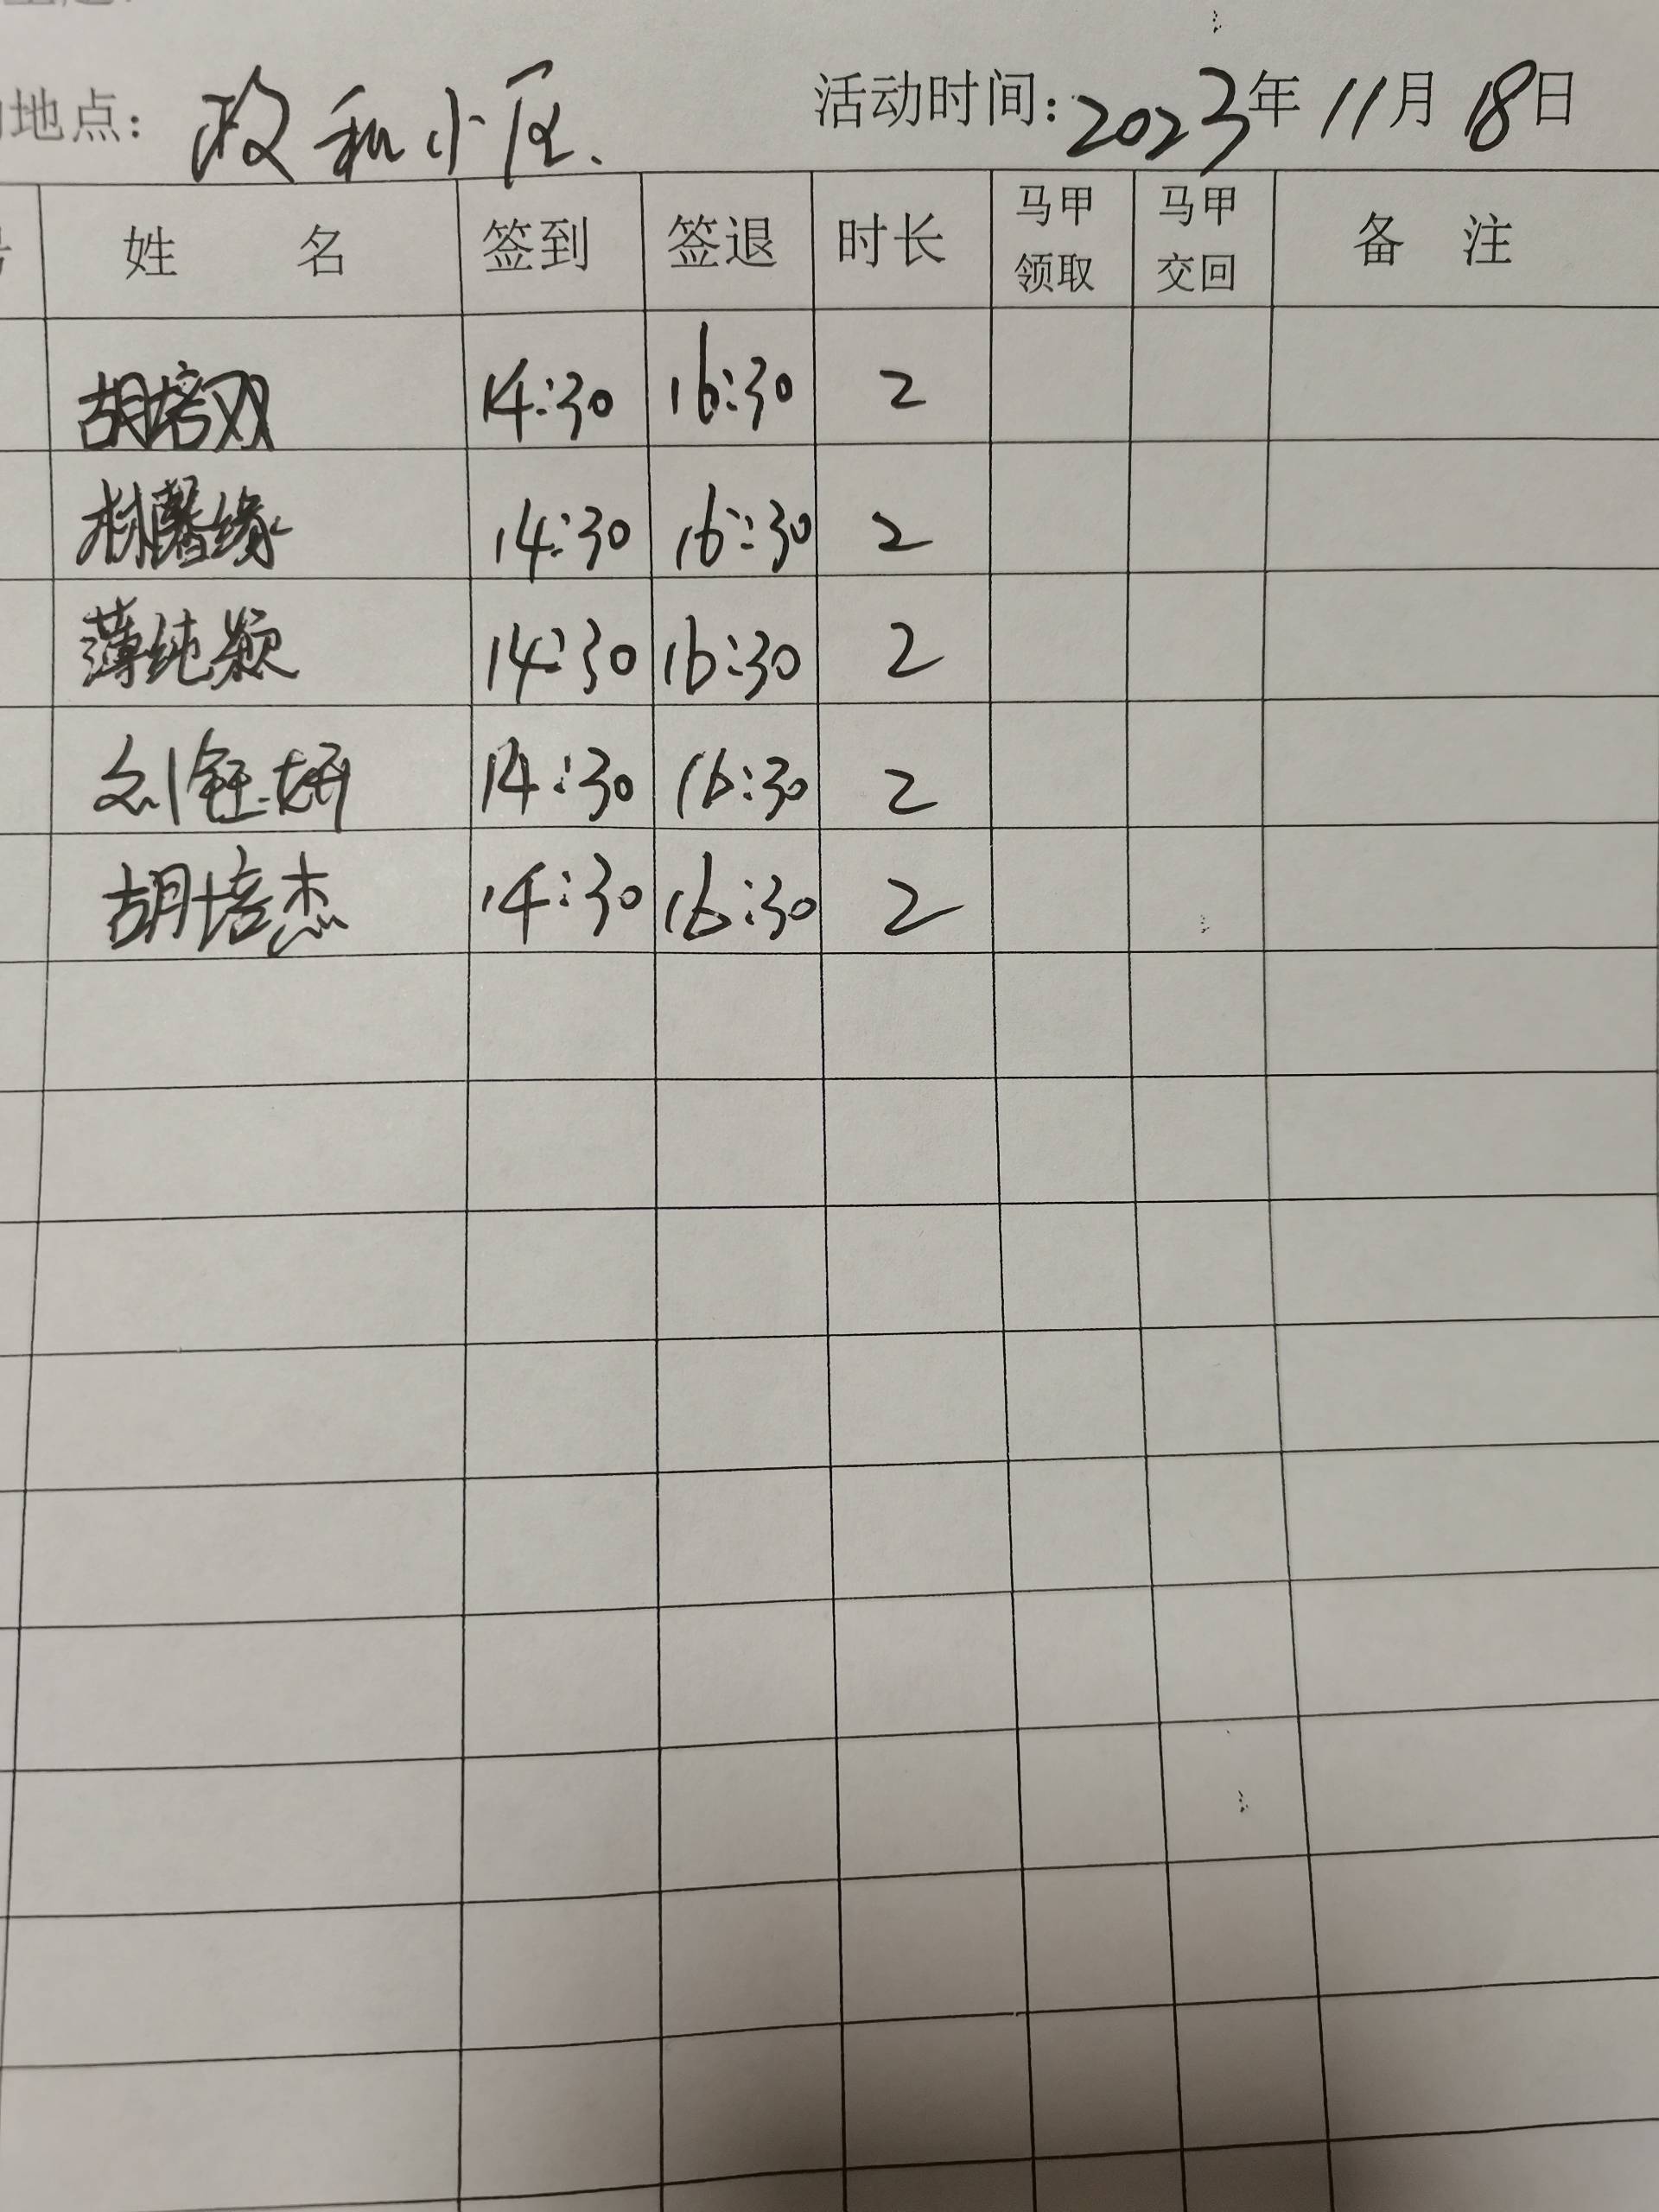 地点：政和小区. 活动时间：2023年11月18日
姓 名 签到 签退 时长 马甲领取 马甲交回 备 注
胡培双 14:30 16:30 2
林馨缘 14:30 16:30 2
薄纯颖 14:30 16:30 2
刘钰妍 14:30 16:30 2
胡培杰 14:30 16:30 2